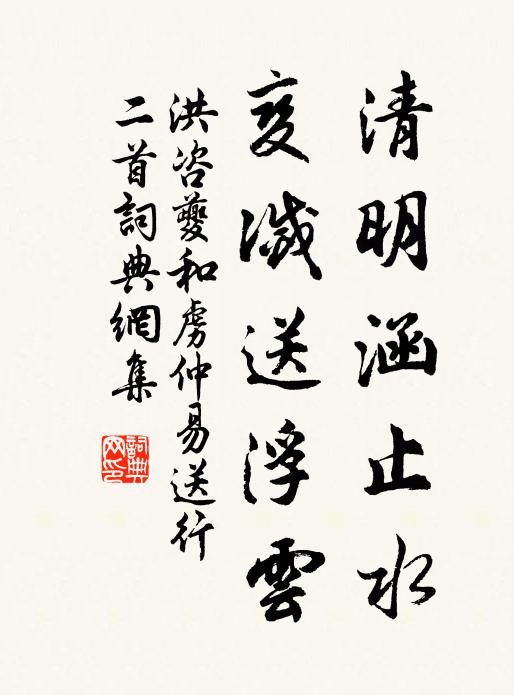 清明涵止水
变滅送浮雲
洪咨夔和虜仲易送行
二首詞典網集
詞典网印